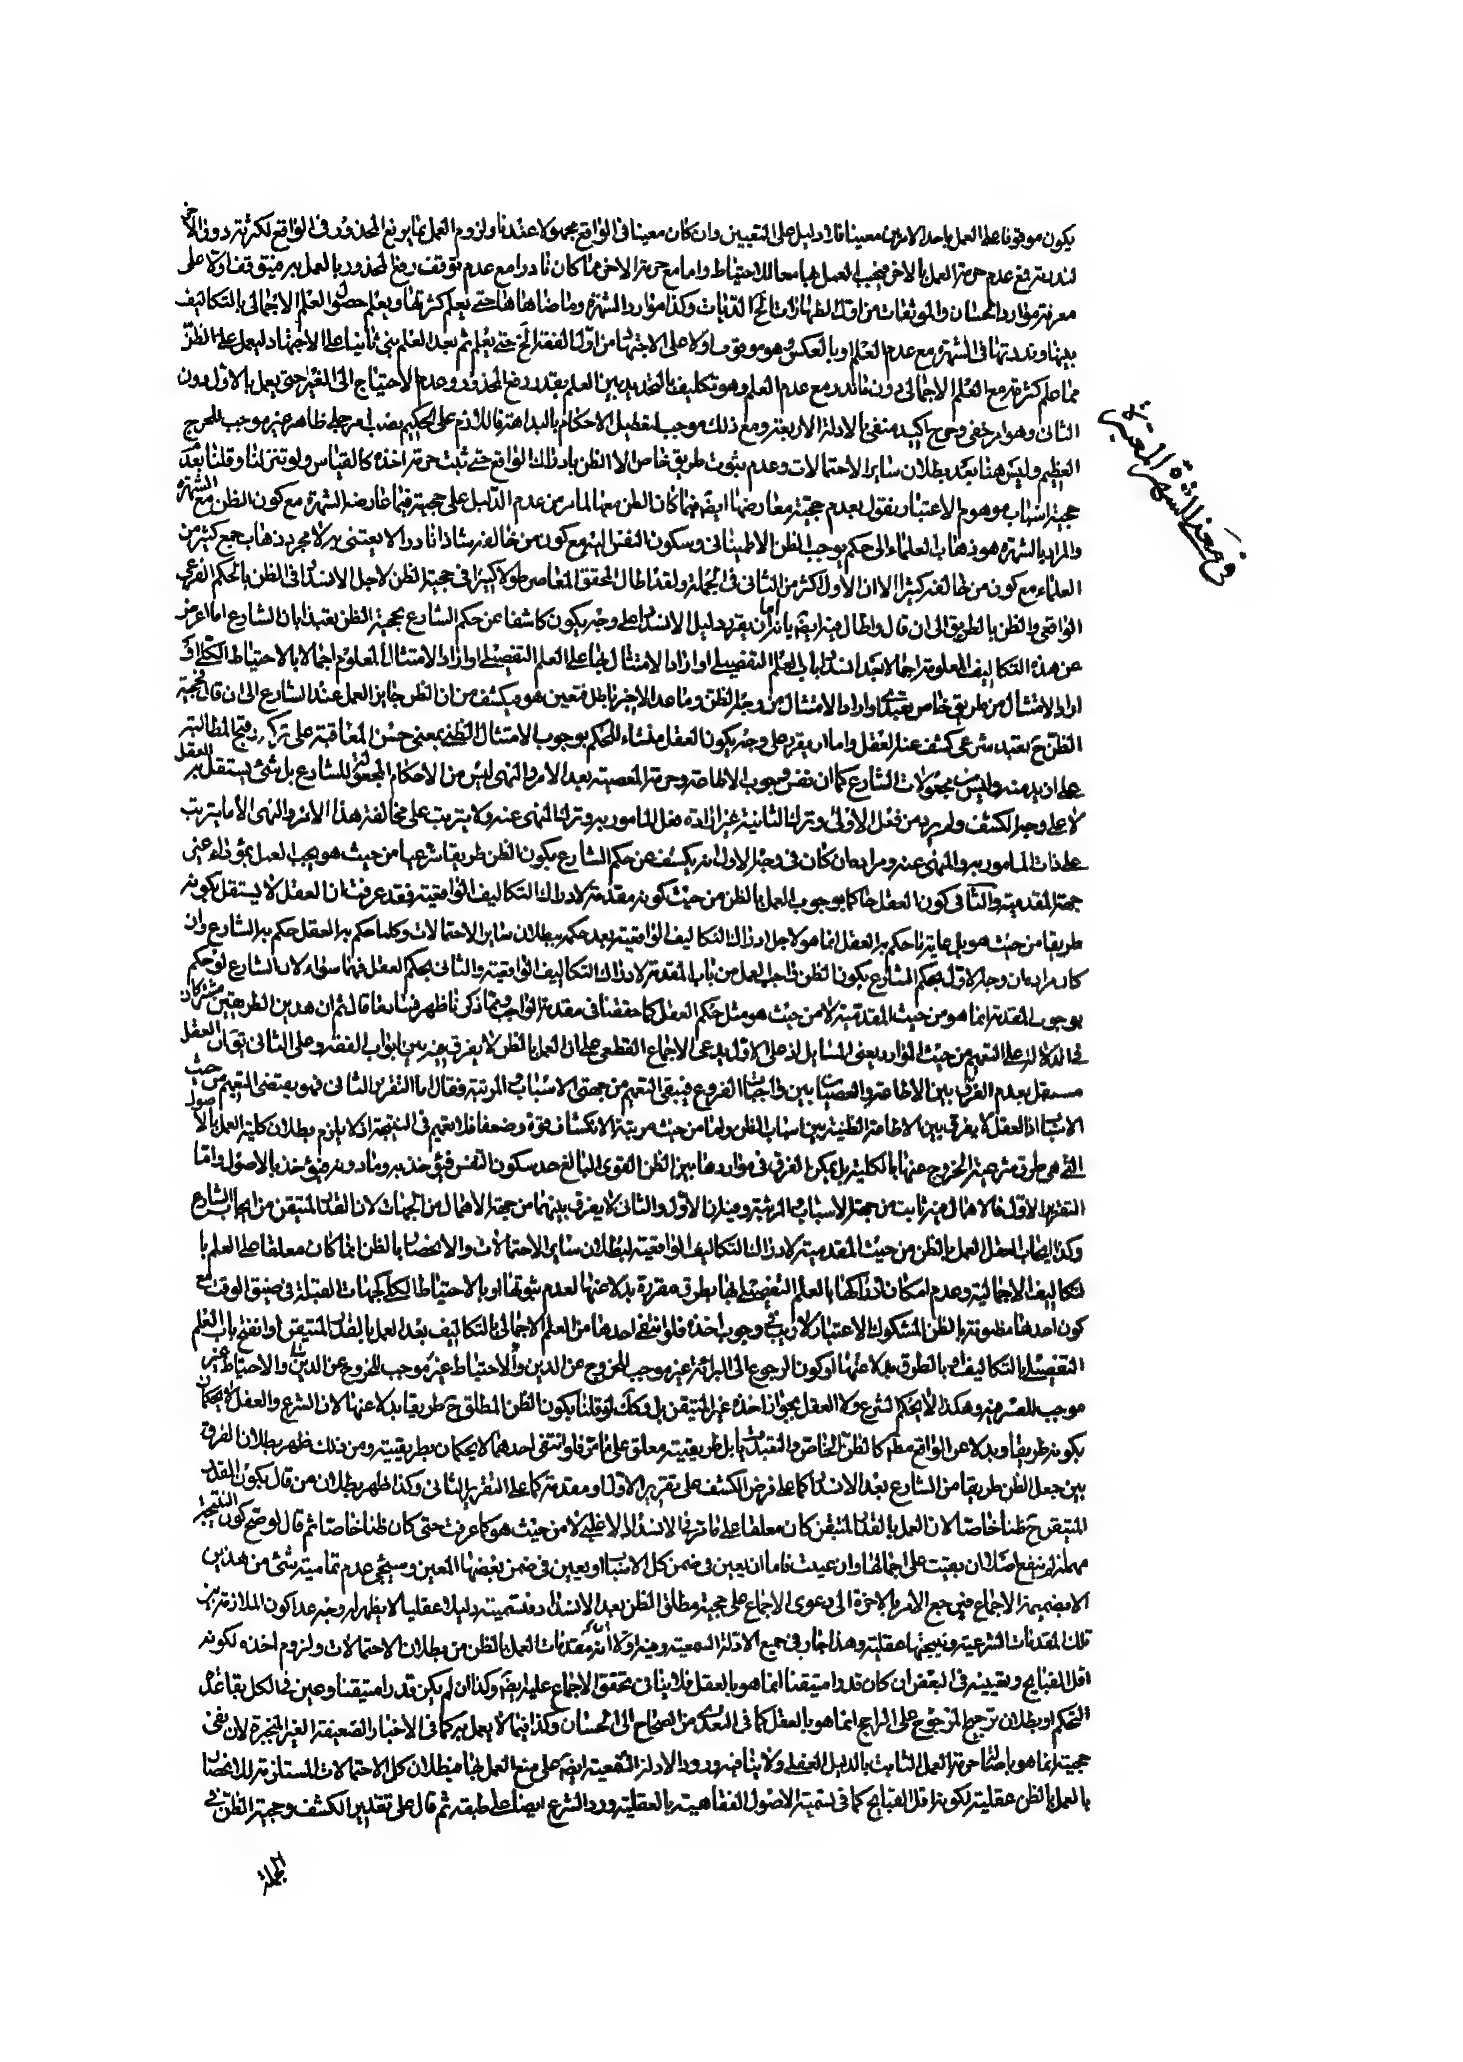 يكون موقوفا على العمل باحد الامرين معينا فلا دليل على التعيين وان كان معينا فى الواقع مجهولا عندنا ولزوم العمل بما يرفع المحذور فى الواقع لكثرته دون الاخر
لندرته فمع عدم حرمة العمل بالاخر فيجب العمل بهما معا للاحتياط واما مع حرمة الاخر مما كان نادرا مع عدم توقف رفع المحذور بالعمل به فيتوقف اولا على
معرفة موارد الحسان والموثقات من اول الطهارات الى الديات وكذا موارد الشهرة وما ضاهاها حتى يعلم كثرتها ويعلم حصول العلم الاجمالى بالتكاليف
بينها وندرتها فى الشهرة مع عدم العلم او بالعكس وهو موقوف اولا على الاجتهاد من اول الفقه الخ حتى يعلم ثم بعد العلم يبنى ثانيا على الاجتهاد ليعمل على الظن
مما علم كثرته مع العلم الاجمالى دون ما ندر مع عدم العلم وهو تكليف بالتحديد بين العلم بقدر رفع المحذور وعدم الاحتياج الى الغير حتى يعمل بالاول دون
الثانى وهو امر خفى وحرج اكيد منفى بالادلة الاربعة ومع ذلك موجب لتعطيل الاحكام بالبداهة فاللازم على الحكيم نصب امر جلى ظاهر غير موجب للحرج
العظيم وليس هنا بعد بطلان ساير الاحتمالات وعدم ثبوت طريق خاص الا الظن بادراك الواقع حتى ثبت حرمة اخذه كالقياس ولو تنزلنا وقلنا بعدم
حجية اسباب موهوم الاعتبار نقول بعدم حجية معارضها ايضا فيما كان الظن معها لما مر من عدم الدليل على حجيته فيما عارضه الشهرة مع كون الظن مع الشهرة
والمراد بالشهرة هو ذهاب العلماء الى حكم يوجب الظن الاطمينانى وسكون النفس اليه مع كون من خالفه شاذا نادرا لا يعتنى به لا مجرد ذهاب جمع كثير من
العلماء مع كون من خالفه كثيرا الا ان الاول اكثر من الثانى فى الجملة ولقد اطال المحقق المعاصر طولا كثيرا فى حجية الظن لاجل الانسداد فى الظن بالحكم الفرعى
الواقعى والظن بالطريق الى ان قال واطال فيه ايضا بانه اما ان يقرر دليل الانسداد على وجه يكون كاشفا عن حكم الشارع بحجية الظن تعبدا بان الشارع اما اعرض
عن هذه التكاليف المعلومة اجمالا بعد انسداد باب العلم التفصيلى او اراد الامتثال بها على العلم التفصيلى او اراد الامتثال المعلوم اجمالا بالاحتياط الكلى او
اراد الامتثال من طريق خاص تعبدى او اراد الامتثال من وجه الظن وما عدا الاخير باطل فتعين هو فيكشف من ان الظن جايز العمل عند الشارع الى ان قال فحجية
الظن ح تعبد شرعى كشف عنه العقل واما ان يقرر على وجه يكون العقل منشاء للحكم بوجوب الامتثال الظنى بمعنى حسن المعاقبة على تركه وقبح المطالبة
على ازيد منه وليس من مجعولات الشارع كما ان نفس وجوب الاطاعة وحرمة المعصية بعد الامر والنهى ليس من الاحكام المجعولة للشارع بل شئ يستقل به العقل
لا على وجه الكشف ولم يرد من فعل الاولى وترك الثانية غير ارادة فعل المامور به وترك المنهى عنه ولا يترتب على مخالفة هذا الامر والنهى الا ما يترتب
على ذات المامور به والمنهى عنه ومراده ان كان فى وجه الاول انه يكشف عن حكم الشارع بكون الظن طريقا شرعيا من حيث هو يجب العمل بمؤداه عنى
جهة المقدمية والثانى كون العقل حاكما بوجوب العمل بالظن من حيث كونه مقدمة لادراك التكاليف الواقعية فقد عرفت ان العقل لا يستقل بكونه
طريقا من حيث هو بل غاية ما حكم به العقل انما هو لاجل ادراك التكاليف الواقعية بعد حكمه ببطلان ساير الاحتمالات وكلما حكم به العقل حكم به الشارع وان
كان مراده ان وجه الاول بحكم الشارع بكون الظن واجب العمل من باب المقدمة لادراك التكاليف الواقعية والثانى بحكم العقل فهما سواء لان الشارع لو حكم
بوجوب المقدمة انما هو من حيث المقدمية لا من حيث هو مثل حكم العقل كما حققنا فى مقدمة الواجب ومما ذكرنا ظهر فساد ما قال ثم ان هذين الطريقين مشتركان
فى الدلالة على التعميم من حيث الموارد يعنى المسايل اذ على الاول يدعى الاجماع القطعى على ان العمل بالظن لا يفرق فيه بين ابواب الفقه وعلى الثانى يقال ان العقل
مستقل بعدم الفرق بين الاطاعة والعصيان بين واجبات الفروع فيبقى التعميم من جهتى الاسباب والمرتبة فقال اما التقرير الثانى فهو يقتضى التعميم من حيث
الاسباب اذ العقل لا يفرق بين الاطاعة الظنية بين اسباب الظن واما من حيث مرتبة الانكشاف قوة وضعفا فلا تعميم فى النتيجة اذ لا يلزم بطلان كلية العمل بالاصول
التى هى طرق شرعية الخروج عنها بالكلية بل يمكن الفرق فى مواردها بين الظن القوى البالغ حد سكون النفس فيؤخذ به وما دونه فيؤخذ بالاصول واما
التقرير الاول فالاهمال فيه ثابت من جهة الاسباب والمرتبة وفيه ان الاول والثانى لا يفرق بينهما من جهة الاهمال من الجهات لان القدر المتيقن من ايجاب الشارع
وكذا ايجاب العقل العمل بالظن من حيث المقدمية لادراك التكاليف الواقعية لبطلان ساير الاحتمالات والانحصار بالظن انما كان معلقا على العلم با
لتكاليف الاجمالية وعدم امكان ادراكها بالعلم التفصيلى بها بطرق مقررة بدلا عنها لعدم ثبوتها او بالاحتياط الكلى كجهات القبلة فى ضيق الوقت مع
كون احدها مظنونة بالظن المشكوك الاعتبار لا ريب فى وجوب اخذه فلو انتفى احدها من العلم الاجمالى بالتكاليف بعد العمل بالقدر المتيقن او انفتح باب العلم
التفصيلى بالتكاليف او بالطرق بدلا عنها او كون الرجوع الى البرائة غير موجب للخروج عن الدين او الاحتياط غير موجب للخروج عن الدين والاحتياط غير
موجب للعسر فيه وهكذا لا يحكم الشرع ولا العقل بجواز اخذه غير المتيقن بل وكذلك لو قلنا بكون الظن المطلق ح طريقا بدلا عنها لان الشرع والعقل لا يحكمان
بكونه طريقا وبدلا عن الواقع مطلقا كالظن الخاص والتعبديات بل طريقيته معلق على ما مر فلو انتفى احدهما لا يحكمان بطريقيته ومن ذلك ظهر بطلان الفرق
بين جعل الظن طريقا من الشارع بعد الانسداد كما على فرض الكشف على تقرير الاول ومقدمة كما على التقرير الثانى وكذا ظهر بطلان من قال بكون القدر
المتيقن ح ظنا خاصا لان العمل بالقدر المتيقن كان معلقا على ما مر فى الانسداد الاغلبى لا من حيث هو كما عرفت حتى كان ظنا خاصا ثم قال لو صح كون النتيجة
مهملة لم ينفع اصلا ان بقيت على اجمالها وان عينت فاما ان يعين فى ضمن كل الاسباب او يعين فى ضمن بعضها المعين وسيجئ عدم تمامية شئ من هذين
الا بضميمة الاجماع فيرجع الامر بالاخرة الى دعوى الاجماع على حجية مطلق الظن بعد الانسداد فتسميته دليلا عقليا لا يظهر له وجه عدا كون الملازمة بين
تلك المقدمات الشرعية ونتيجتها عقلية وهذا جار فى جميع الادلة السمعية وفيه اولا انه مقدمات العمل بالظن من بطلان الاحتمالات ولزوم اخذه لكونه
اقل القبايح وتعيينه فى البعض ان كان قدرا متيقنا انما هو بالعقل فلا ينافى تحقق الاجماع عليه ايضا وكذا ان لم يكن قدرا متيقنا وعين فى الكل بقاعدة
التحكم او بطلان ترجيح المرجوح على الراجح انما هو بالعقل كما فى التعدى من الصحاح الى الحسان وكذا فيما لا يعمل به كما فى الاخبار الضعيفة الغير المنجبرة لان نفى
حجيته انما هو باصالة حرمة العمل الثابت بالدليل العقلى ولا ينافيه ورود الادلة السمعية ايضا على منع العمل بها فبطلان كل الاحتمالات المستلزمة للانحصار
بالعمل بالظن عقلية لكونه اقل القبايح كما فى تسمية الاصول الفقاهية بالعقلية وورد الشرع ايضا على طبقه ثم قال على تقدير الكشف وحجية الظن فى
الجملة
فى معنى الشهرة المعتبرة